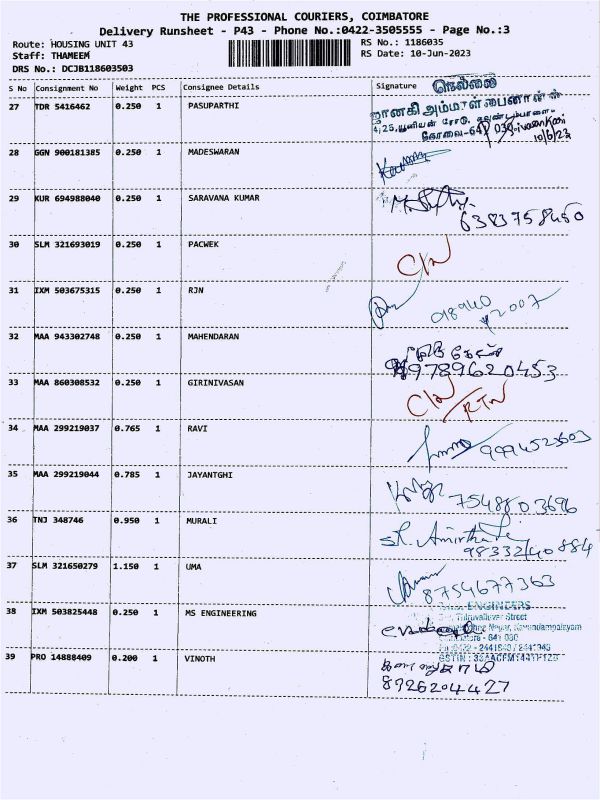 THE PROFESSIONAL COURIERS, COIMBATORE
Delivery Runsheet - P43 - Phone No.:0422-3505555 - Page No.:3
Route: HOUSING UNIT 43 RS No.: 1186035
Staff: THAMEEM RS Date: 10-Jun-2023
DRS No.: DCJB118603503
S No Consignment No Weight PCS Consignee Details Signature
நெல்லை
27 TDR 5416462 0.250 1 PASUPARTHI
ஜானகி அம்மாள் பைனான்ஸ்
கோவை-641 030
10/6/23
28 GGN 900181385 0.250 1 MADESWARAN
29 KUR 694988040 0.250 1 SARAVANA KUMAR
6383758450
30 SLM 321693019 0.250 1 PACWEK
C/N
31 IXM 503675315 0.250 1 RJN
98940
92007
32 MAA 943302748 0.250 1 MAHENDARAN
9789620453
33 MAA 860308532 0.250 1 GIRINIVASAN
C/N / RTN
34 MAA 299219037 0.765 1 RAVI
9994523603
35 MAA 299219044 0.785 1 JAYANTGHI
7548803696
36 TNJ 348746 0.950 1 MURALI
9833240884
37 SLM 321650279 1.150 1 UMA
8754677363
ENGINEERS
Thiruvalluver Street
38 IXM 503825448 0.250 1 MS ENGINEERING
Nagar, Kavundampalayam
641 030
39 PRO 14888409 0.200 1 VINOTH
8926204427